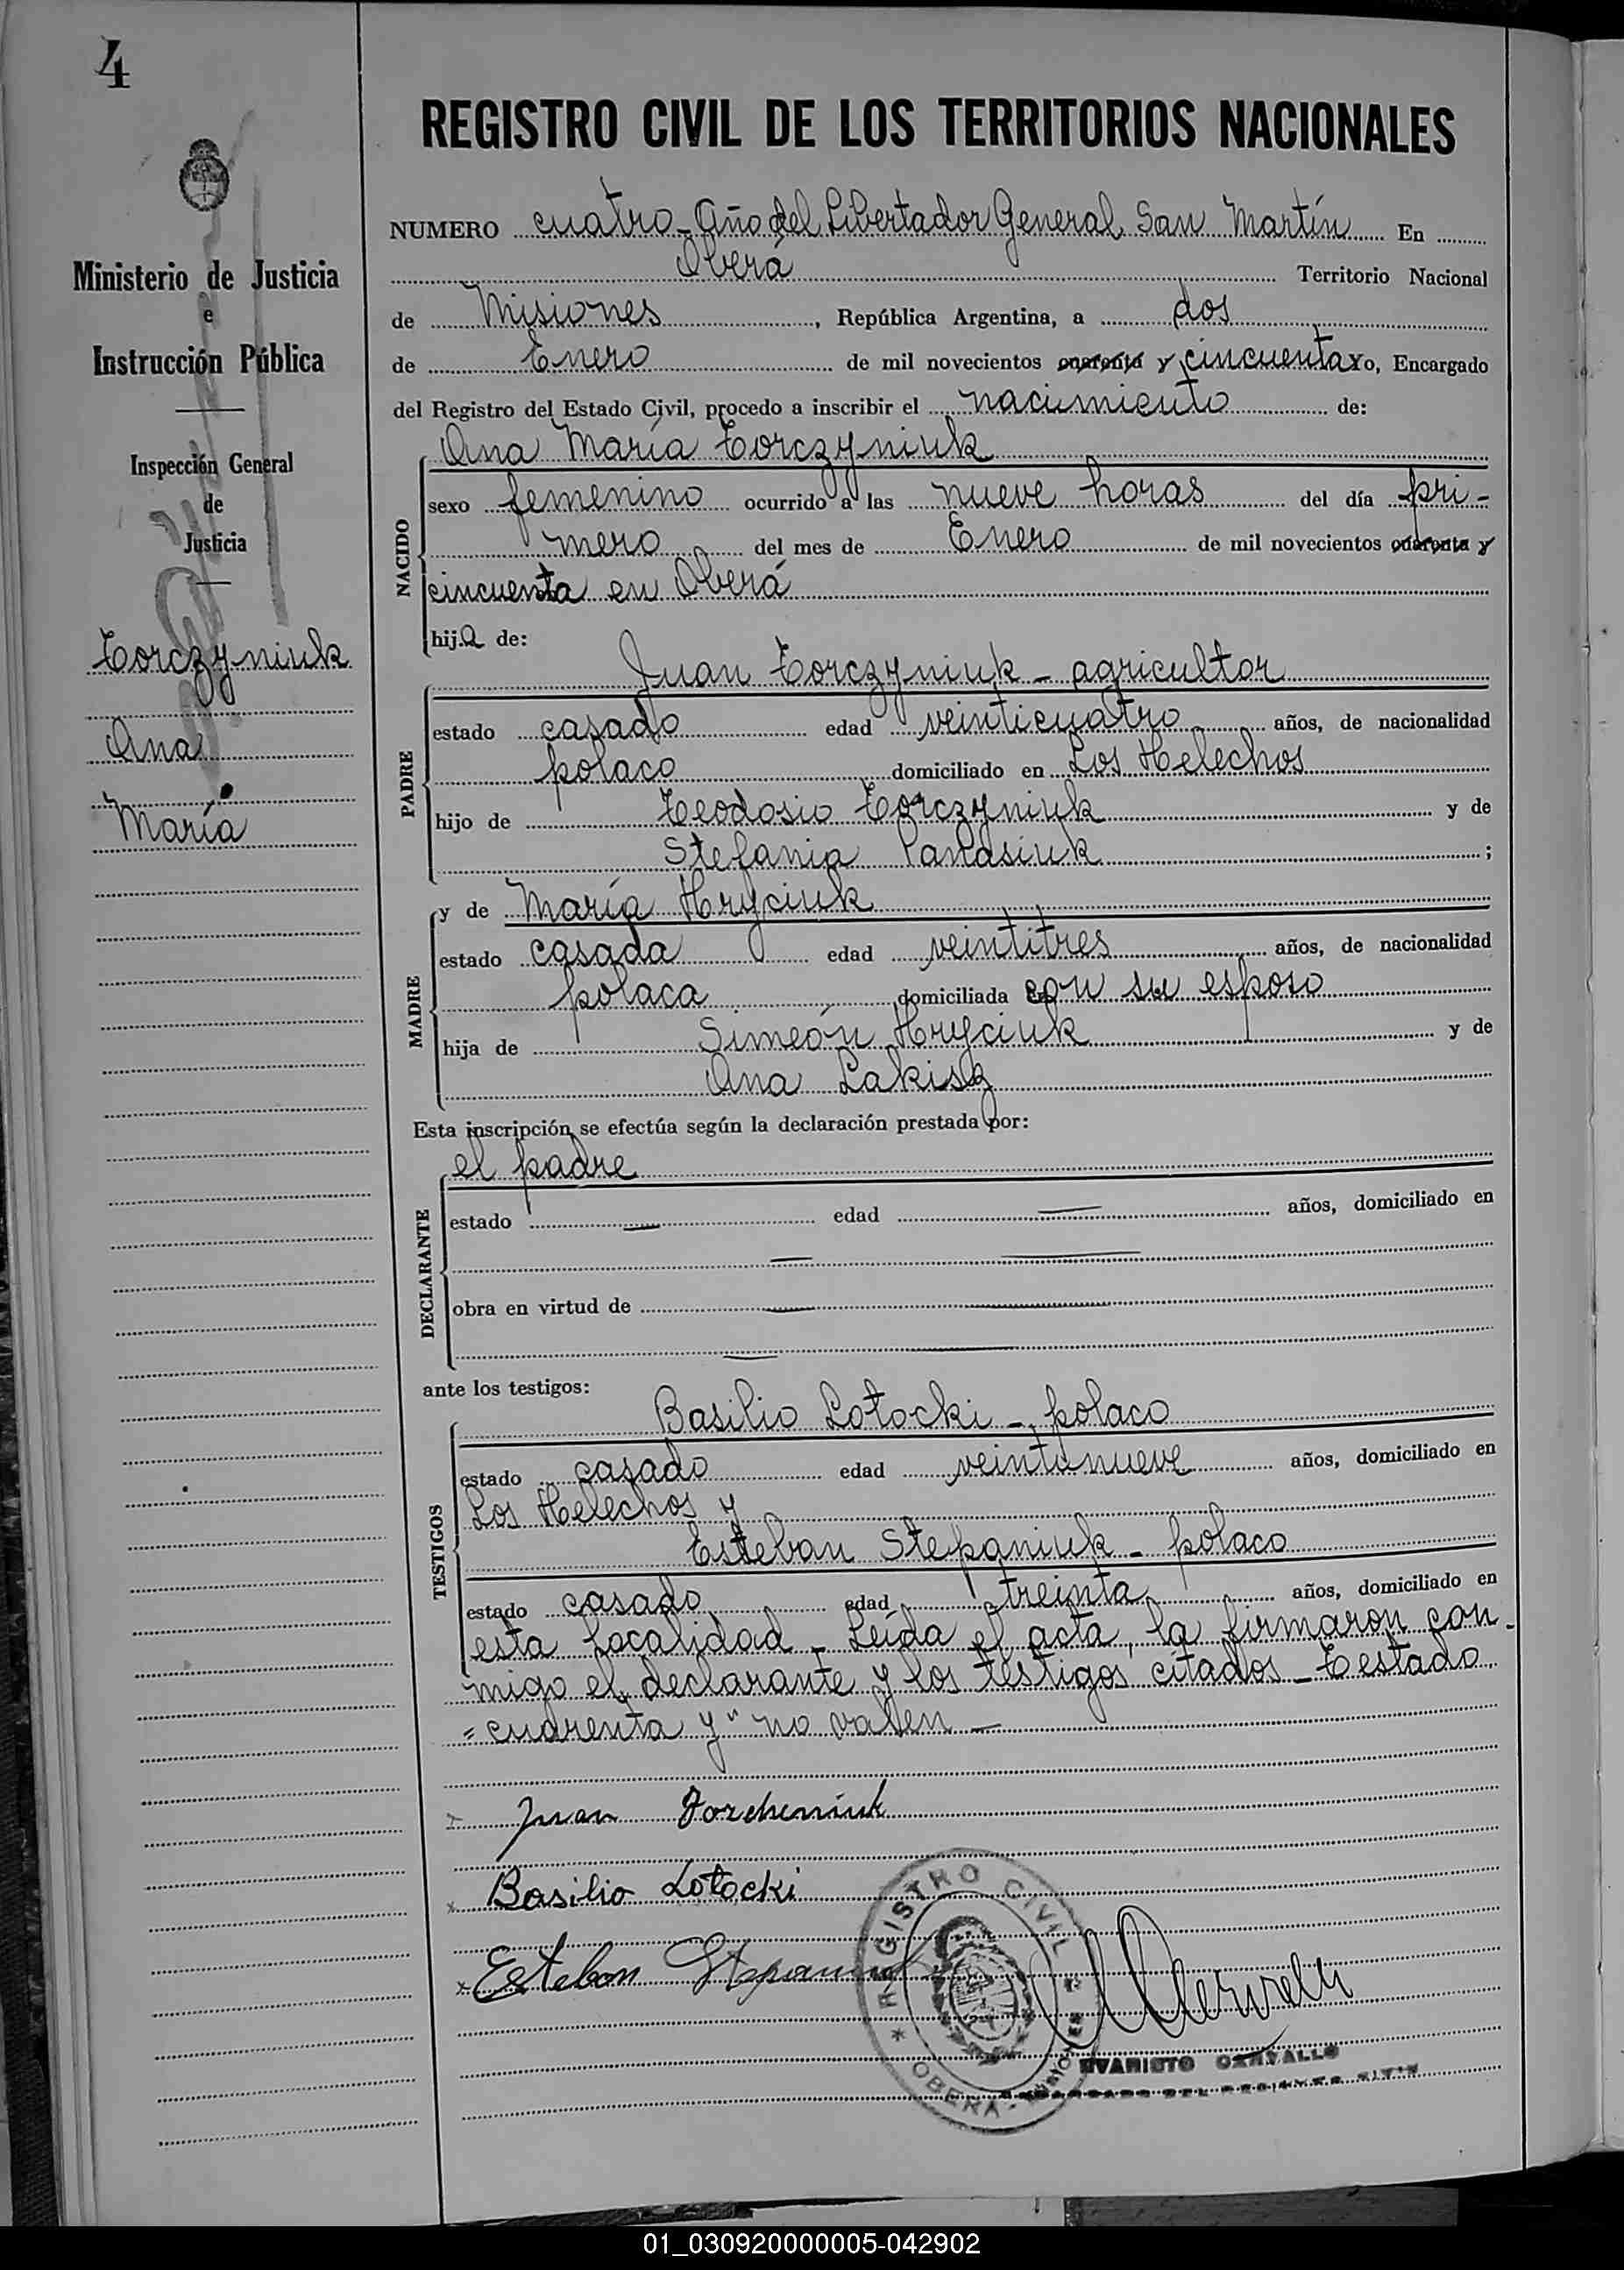 4
REGISTRO CIVIL DE LOS TERRITORIOS NACIONALES
Ministerio de Justicia
e
Instrucción Pública
Inspección General
de
Justicia
Torczyniuk
Ana
María
NUMERO cuatro - Año del Libertador General San Martín En
Oberá Territorio Nacional
de Misiones, República Argentina, a dos
de Enero de mil novecientos cuarenta y cincuenta Yo, Encargado
del Registro del Estado Civil, procedo a inscribir el nacimiento de:
NACIDO
Ana María Torczyniuk
sexo femenino ocurrido a las nueve horas del día pri-
mero del mes de Enero de mil novecientos cuarenta y
cincuenta en Oberá
hija de:
PADRE
Juan Torczyniuk - agricultor
estado casado edad veinticuatro años, de nacionalidad
polaco domiciliado en Los Helechos
hijo de Teodosio Torczyniuk y de
Stefania Panasiuk;
MADRE
y de María Hryciuk
estado casada edad veintitres años, de nacionalidad
polaca domiciliada con su esposo
hija de Simeón Hryciuk y de
Ana Lakisz
Esta inscripción se efectúa según la declaración prestada por:
DECLARANTE
el padre
estado — edad — años, domiciliado en
obra en virtud de
ante los testigos:
TESTIGOS
Basilio Lotocki - polaco
estado casado edad veintinueve años, domiciliado en
Los Helechos y
Esteban Stepaniuk - polaco
estado casado edad treinta años, domiciliado en
esta localidad - Leída el acta, la firmaron con-
migo el declarante y los testigos citados - Testado
"cuarenta y" no valen -
Juan Torcheniuk
Basilio Lotocki
Esteban Stepaniuk
REGISTRO CIVIL
OBERA - MISIONES
EVARISTO CARVALLO
ENCARGADO DEL REGISTRO CIVIL
01_030920000005-042902